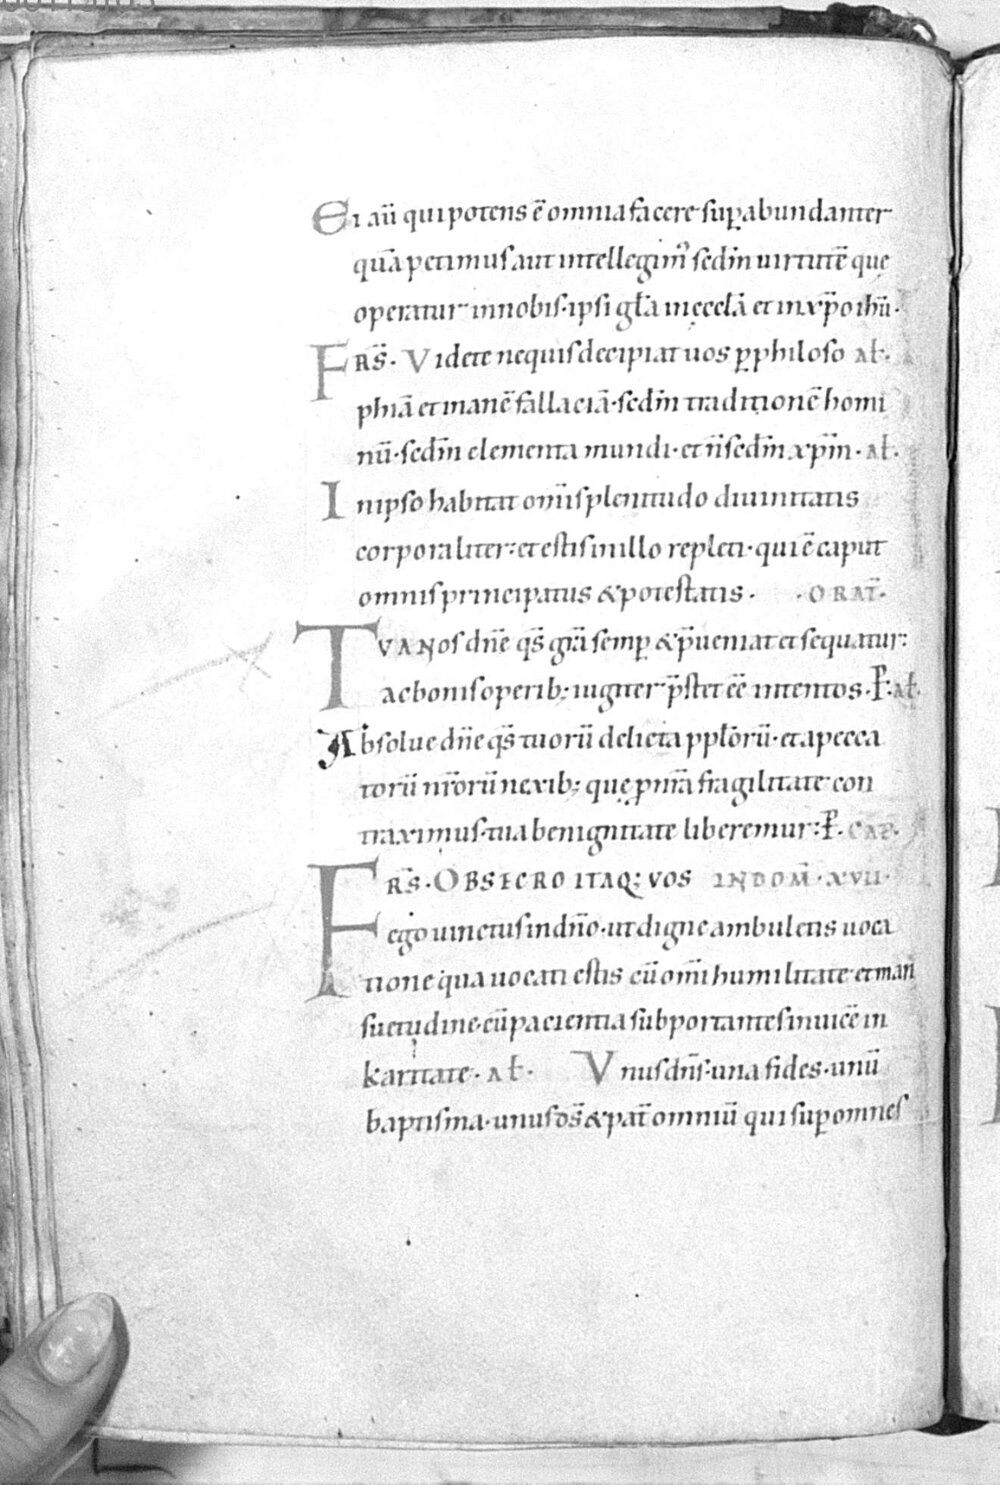 Ei aū qui potens ē omnia facere sup̱abundanter
quā petimus aut intellegim᷒ sedm̄ uirtutē que
operatur in nobis· ipsi gl̄a in ęccl̄a et in xp̄o ih̄u·
FRS̄· Videte nequis decipiat uos p̱ philoso al̄·
phiā et inanē fallaciā· sedm̄ traditionē homi
nū· sedm̄ elementa mundi· et n̄ sedm̄ xp̄m· al̄·
In ipso habitat om̄is plenitudo diuinitatis
corporaliter: et estis in illo repleti· qui ē caput
omnis principatus & potestatis· ·ORAT̄·
TVA NOS dn̄e qs̄ gr̄a semp̱ & p̄ueniat et sequatur:
ac bonis operib; iugiter p̄stet eē intentos· P̱· al̄·
Absolue dn̄e qs̄ tuorū delicta ppl̄orū· et a pecca
torū nr̄orū nexib; quę p̱ nr̄a fragilitate con
traximus· tua benignitate liberemur: P̱· CAP̄·
FRS̄· OBSECRO ITAQ; VOS IN DOM̄· XVII·
ego uinctus in dn̄o· ut digne ambuletis uoca
tione qua uocati estis cū om̄i humilitate et man
suetudine· cū pacientia subportantes inuicē in
karitate· al̄· Vnus dn̄s· una fides· unū
baptisma· unus ds̄ & pat̄ omniū qui sup̱ omnes